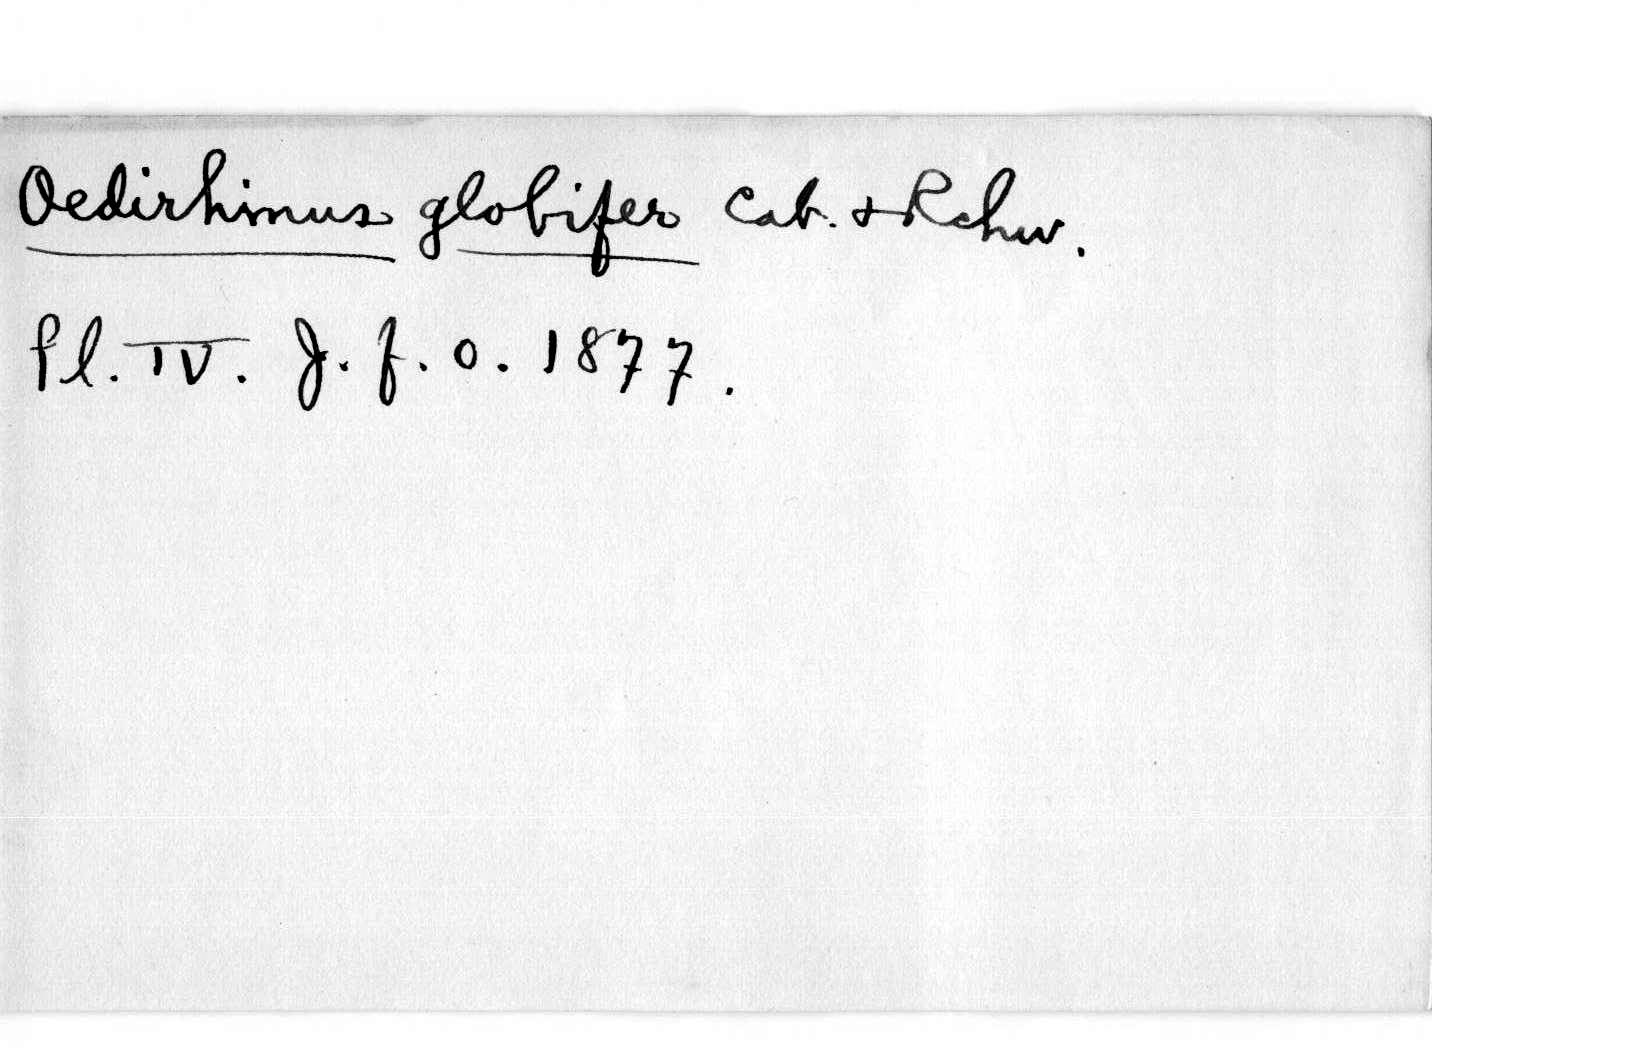 Oedirhinus globifer Cab. & Rchw.
Pl. IV. J. f. O. 1877.